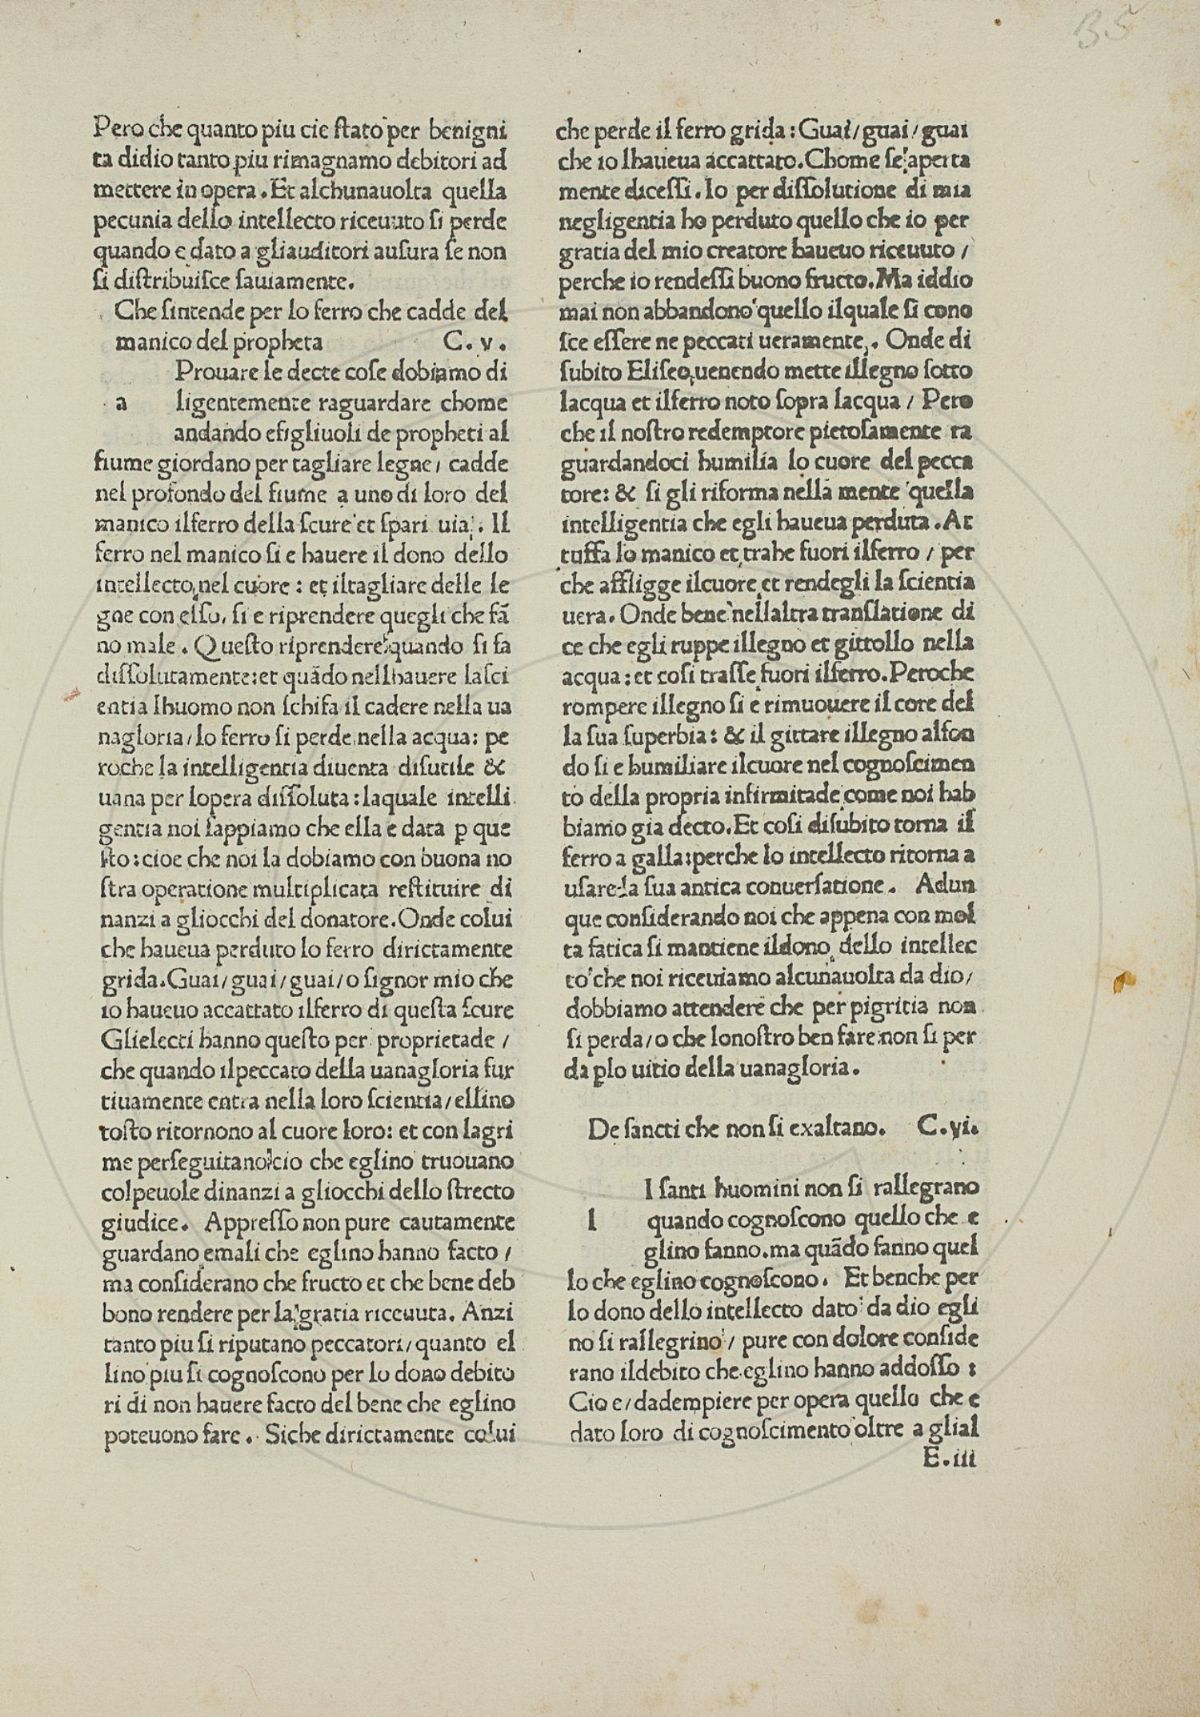 35
Pero che quanto piu cie ſtato per benigni
ta didio tanto piu rimagnamo debitori ad
mettere in opera. Et alchunauolta quella
pecunia dello intellecto riceuuto ſi perde
quando e dato a gliauditori auſura ſe non
ſi diſtribuiſce ſauiamente.
Che ſintende per lo ferro che cadde del
manico del propheta C. v.
Prouare le decte coſe dobiamo di
a ligentemente raguardare chome
andando efigliuoli de propheti al
fiume giordano per tagliare legne/ cadde
nel profondo del fiume a uno di loro del
manico ilferro della ſcure et ſpari uia. Il
ferro nel manico ſi e hauere il dono dello
intellecto nel cuore: et iltagliare delle le
gne con eſſo, ſi e riprendere quegli che fā
no male. Queſto riprendere quando ſi fa
diſſolutamente: et quādo nellhauere laſci
entia lhuomo non ſchifa il cadere nella ua
nagloria/ lo ferro ſi perde nella acqua: pe
roche la intelligentia diuenta diſutile &
uana per lopera diſſoluta: laquale intelli
gentia noi ſappiamo che ella e data p que
ſto: cioe che noi la dobiamo con buona no
ſtra operatione multiplicata reſtituire di
nanzi a gliocchi del donatore. Onde colui
che haueua perduto lo ferro dirictamente
grida. Guai/ guai/ guai/ o ſignor mio che
io haueuo accattato ilferro di queſta ſcure
Glielecti hanno queſto per proprietade /
che quando ilpeccato della uanagloria fur
tiuamente entra nella loro ſcientia/ ellino
toſto ritornono al cuore loro: et con lagri
me perſeguitano cio che eglino truouano
colpeuole dinanzi a gliocchi dello ſtrecto
giudice. Appreſſo non pure cautamente
guardano emali che eglino hanno facto /
ma conſiderano che fructo et che bene deb
bono rendere per la gratia riceuuta. Anzi
tanto piu ſi riputano peccatori/ quanto el
lino piu ſi cognoſcono per lo dono debito
ri di non hauere facto del bene che eglino
poteuono fare. Siche dirictamente colui
che perde il ferro grida: Guai/ guai/ guai
che io lhaueua accattato. Chome ſe aperta
mente diceſſi. Io per diſſolutione di mia
negligentia ho perduto quello che io per
gratia del mio creatore haueuo riceuuto /
perche io rendeſſi buono fructo. Ma iddio
mai non abbandono quello ilquale ſi cono
ſce eſſere ne peccati ueramente. Onde di
ſubito Eliſeo uenendo mette illegno ſotto
lacqua et ilferro noto ſopra lacqua / Pero
che il noſtro redemptore pietoſamente ra
guardandoci humilia lo cuore del pecca
tore: & ſi gli riforma nella mente quella
intelligentia che egli haueua perduta. At
tuffa lo manico et trahe fuori ilferro / per
che affligge ilcuore et rendegli la ſcientia
uera. Onde bene nellaltra tranſlatione di
ce che egli ruppe illegno et gittollo nella
acqua: et coſi traſſe fuori ilferro. Peroche
rompere illegno ſi e rimuouere il core del
la ſua ſuperbia: & il gittare illegno alfon
do ſi e humiliare ilcuore nel cognoſcimen
to della propria infirmitade come noi hab
biamo gia decto. Et coſi diſubito torna il
ferro a galla: perche lo intellecto ritorna a
uſare la ſua antica conuerſatione. Adun
que conſiderando noi che appena con mol
ta fatica ſi mantiene ildono dello intellec
to che noi riceuiamo alcunauolta da dio/
dobbiamo attendere che per pigritia non
ſi perda/ o che lonoſtro ben fare non ſi per
da plo uitio della uanagloria.
De ſancti che non ſi exaltano. C. vi.
I ſanti huomini non ſi rallegrano
l quando cognoſcono quello che e
glino fanno. ma quādo fanno quel
lo che eglino cognoſcono. Et benche per
lo dono dello intellecto dato da dio egli
no ſi rallegrino / pure con dolore conſide
rano ildebito che eglino hanno addoſſo :
Cio e/ dadempiere per opera quello che e
dato loro di cognoſcimento oltre a glial
E. iii